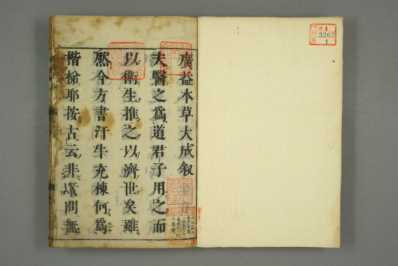 廣益本草大成叙
夫醫之為道君子用之而
以衛生推之以濟世矣雖
然今方書汗牛充棟何為
階梯耶按古云非素問無
3262
1